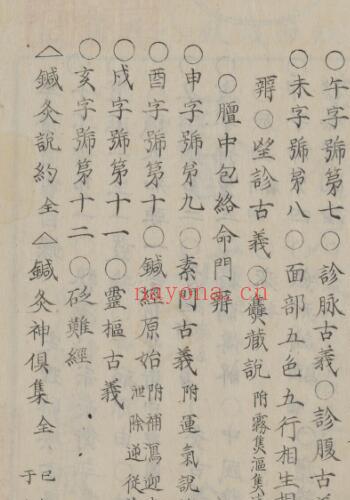 ○午字號第七○診脉古義○診腹古義
○未字號第八○面部五色五行相生相
辨○望診古義○蟲藏說附霧集漚集
○膻中包絡命門辨
○申字號第九○素問古義附運氣說
○酉字號第十○鍼經原始附補瀉迎
泄除逆從
○戌字號第十一○靈樞古義
○亥字號第十二○砭難經
△鍼灸說約全△鍼灸神俱集全
已
于
nayona.cn